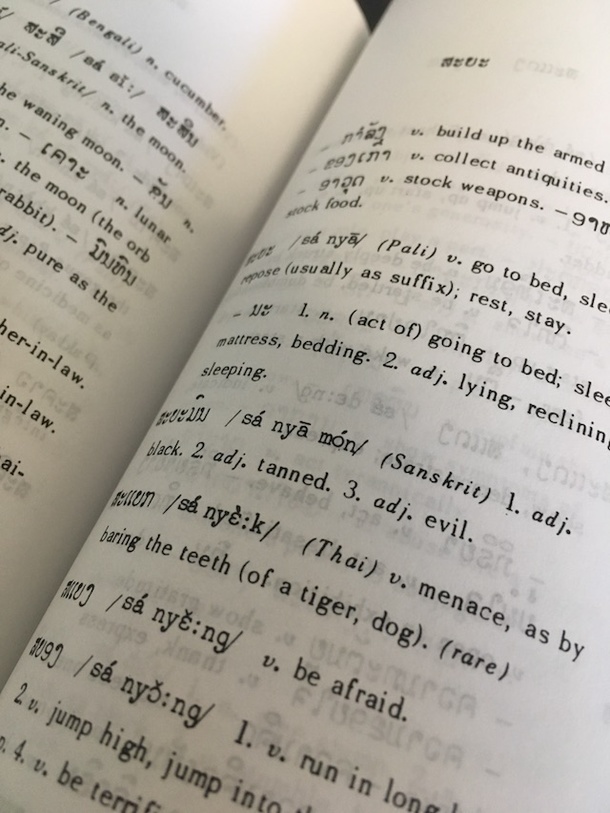 / (Bengali) n. cucumber.
/ສະສິ /sá sǐ:/ ສະສິນ
Pali-Sanskrit/ n. the moon.
the waning moon. – ຄັບ n.
n. – ເຄາະ n. lunar
. the moon (the orb
rabbit). – ມົນທົນ
adj. pure as the
her-in-law.
in-law.
ai-
ສະຍະ
v. build up the armed
– ຂອງເກົ່າ v. collect antiquities.
– ອາວຸດ v. stock weapons. – ອາຫ
stock food.
ສະຍະ /sá nyā/ (Pali) v. go to bed, slee
repose (usually as suffix); rest, stay.
– ນະ 1. n. (act of) going to bed; slee
mattress, bedding. 2. adj. lying, reclining
sleeping.
ສະຍະມົນ /sá nyā món/ (Sanskrit) 1. adj.
black. 2. adj. tanned. 3. adj. evil.
ສະແຍກ /sá nyɛ̀:k/ (Thai) v. menace, as by
baring the teeth (of a tiger, dog). (rare)
ສແຍງ /sá nyɛ̌:ng/ v. be afraid.
ສຍອງ /sá nyɔ̌:ng/ 1. v. run in long
2. v. jump high, jump into the
n. 4. v. be terrifi